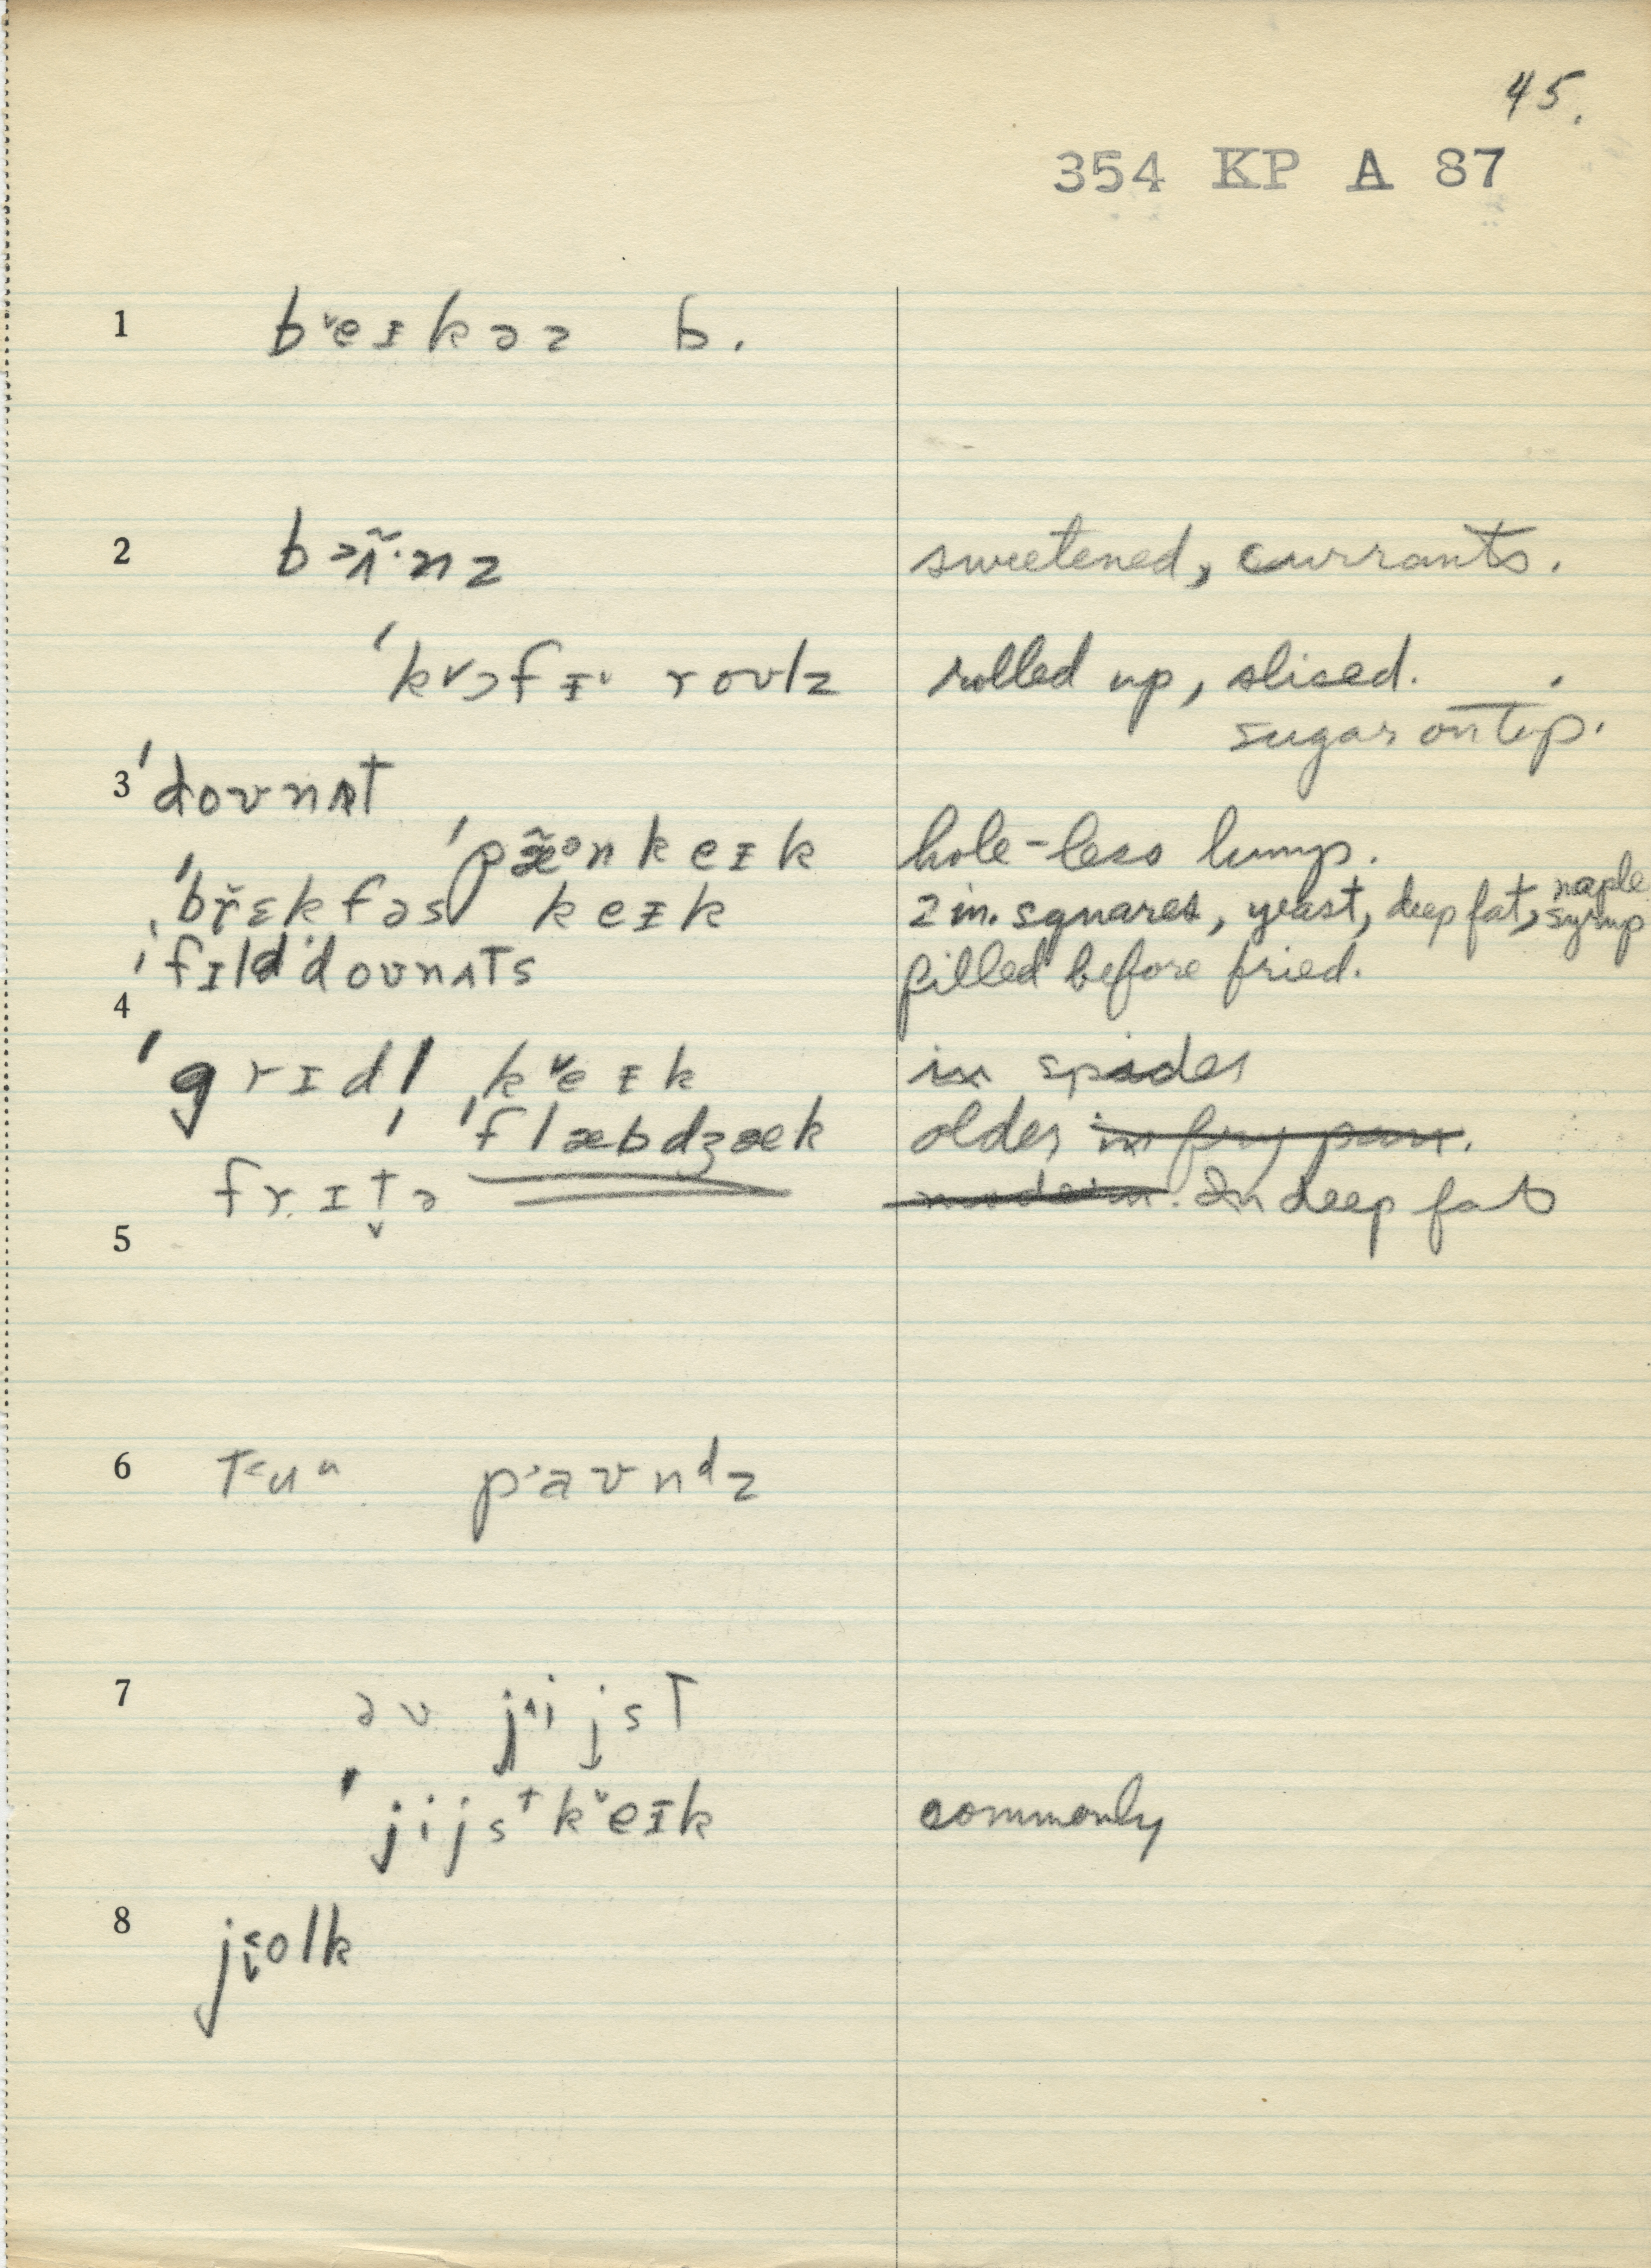 45.
354 KP A 87
1 b˅eɪkəə b.
2 b>ʌ̃·nz sweetened, currants.
ˈk˅ɔfɪ˅ roʊlz rolled up, sliced.
sugar on top.
3 ˈdoʊnʌt
ˈpæ̃ᵊnkeɪk hole-less lump.
ˈbr̆ɛkfəs keɪk 2 in. squares, yeast, deep fat, maple syrup
ˈfɪldˈdoʊnʌts filled before fried.
4
ˈgrɪdl ˌk˅eɪk in spider
ˈflæbdʒæk older in fry pan.
frɪt̬ə modern. In deep fat
5
6 t˂uᵘ p˃aʊnᵈz
7 əv j˄ijst
ˈjijsᵗk˅eɪk commonly
8 jɛolk